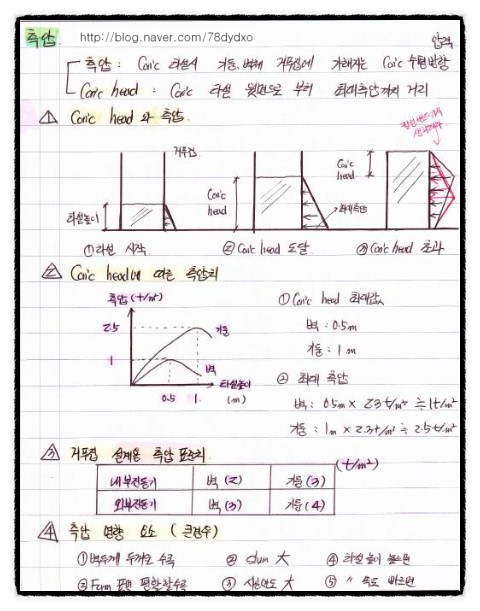 측압. http://blog.naver.com/78dydxo
측압 : Con'c 타설시 기둥, 벽체 거푸집에 가해지는 Con'c 수평방향 압력
Con'c head : Con'c 타설 윗면으로 부터 최대측압까지 거리
① Con'c head 와 측압.
거푸집.
타설높이
Con'c head
최대측압
Con'c head
①타설 시작. ② Con'c head 도달. ③ Con'c head 초과
② Con'c head에 따른 측압치
측압 (t/m²)
2.5
기둥
1
벽
타설높이
0.5 1. (m)
① Con'c head 최대값
벽 : 0.5m
기둥 : 1m
② 최대 측압
벽 : 0.5m × 2.3t/m³ ≒ 1t/m²
기둥 : 1m × 2.3t/m³ ≒ 2.5t/m²
③ 거푸집 설계용 측압 표준치 (t/m²)
내부진동기 벽 (2) 기둥 (3)
외부진동기 벽 (3) 기둥 (4)
④ 측압 영향 요소 ( 큰경우)
①벽두께 두꺼울 수록 ② slump 大 ④ 타설 높이 높으면
②Form 표면 평활할수록 ③ 시공연도 大 ⑤ 〃 속도 빠르면